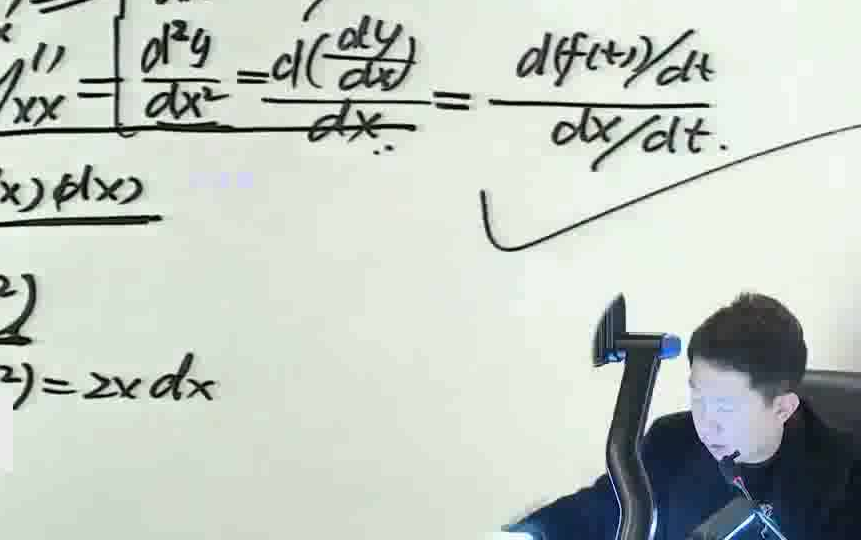 y''xx = d²y/dx² = d(dy/dx)/dx = d(f(t))/dt / dx/dt.
x) (dx)
²)
²) = 2x dx